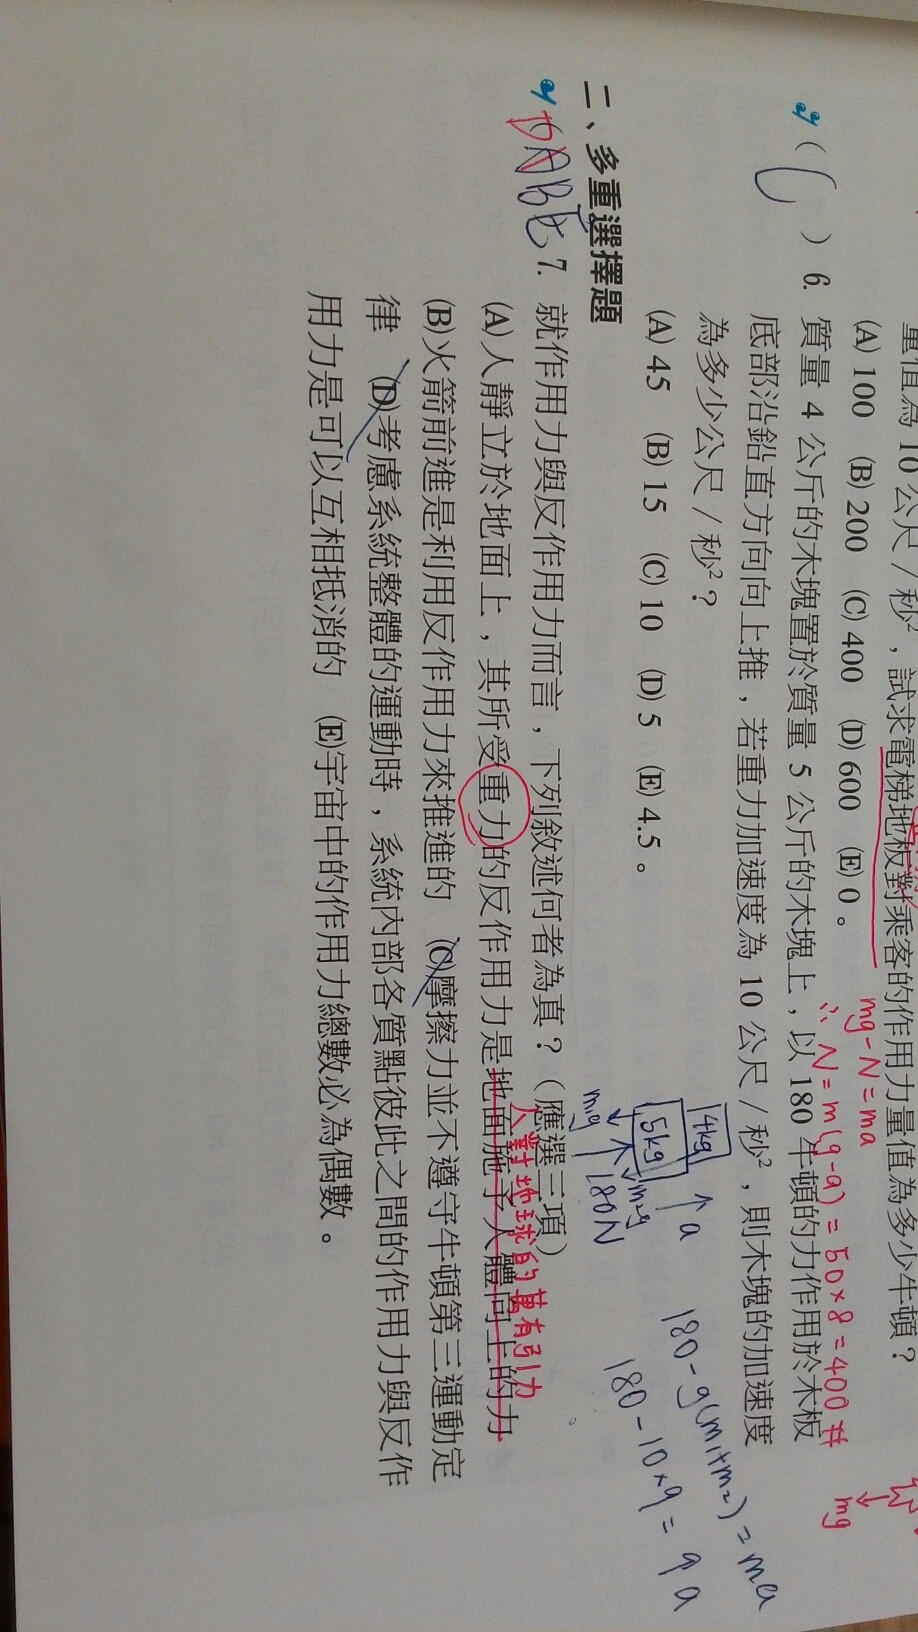 量值為 10 公尺/秒²，試求電梯地板對乘客的作用力量值為多少牛頓？
(A) 100 (B) 200 (C) 400 (D) 600 (E) 0。
mg-N=ma
∴ N=m(g-a)=50×8=400#
mg
( C ) 6. 質量 4 公斤的木塊置於質量 5 公斤的木塊上，以 180 牛頓的力作用於木板
底部沿鉛直方向向上推，若重力加速度為 10 公尺/秒²，則木塊的加速度
為多少公尺/秒²？
(A) 45 (B) 15 (C) 10 (D) 5 (E) 4.5。
4kg
5kg
↑a
m₂g
m₁g
180N
180-g(m₁+m₂)=ma
180-10×9=9a
二、多重選擇題
DABE 7. 就作用力與反作用力而言，下列敘述何者為真？（應選三項）
人對地球的萬有引力
(A)人靜立於地面上，其所受重力的反作用力是地面施予人體向上的力
(B)火箭前進是利用反作用力來推進的 (C)摩擦力並不遵守牛頓第三運動定
律 (D)考慮系統整體的運動時，系統內部各質點彼此之間的作用力與反作
用力是可以互相抵消的 (E)宇宙中的作用力總數必為偶數。